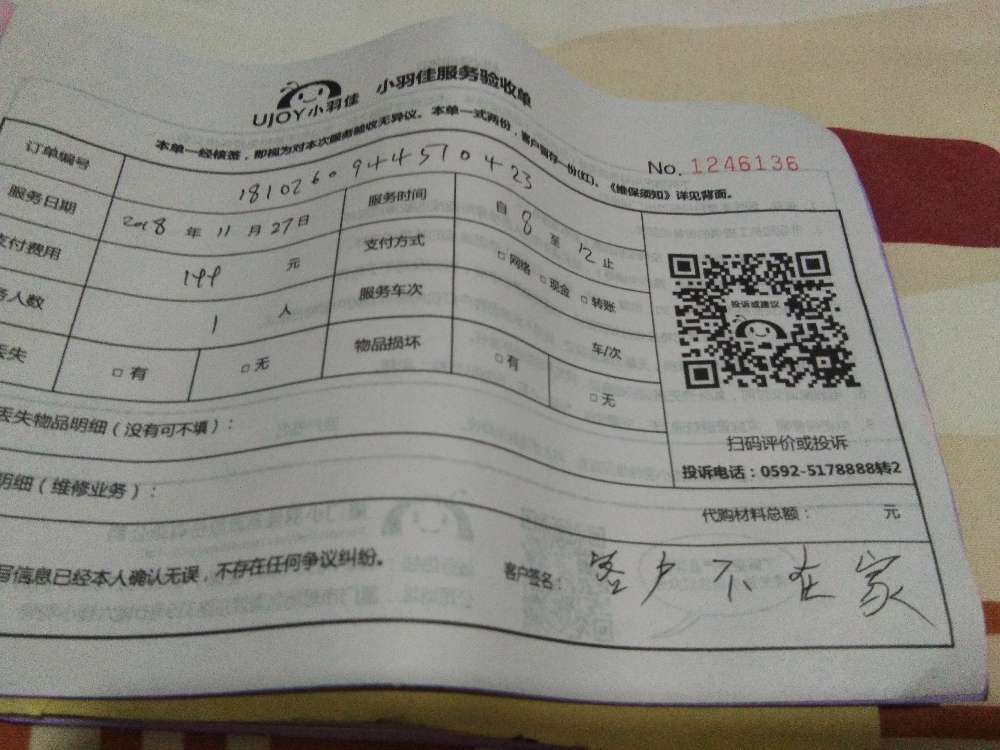 UJOY小羽佳 小羽佳服务验收单
本单一经核签，即视为对本次服务验收无异议。本单一式两份，客户留存一份(红)。《维保须知》详见背面。
No. 1246136
订单编号 181026094451 0423
服务日期 2018 年 11 月 27 日 服务时间 自 8 至 12 止
支付费用 199 元 支付方式 □ 网络 □ 现金 □ 转账
务人数 1 人 服务车次 车/次
丢失 □ 有 □ 无 物品损坏 □ 有 □ 无
投诉或建议
扫码评价或投诉
投诉电话：0592-5178888转2
丢失物品明细（没有可不填）：
明细（维修业务）： 代购材料总额： 元
写信息已经本人确认无误，不存在任何争议纠纷。 客户签名： 客户不在家